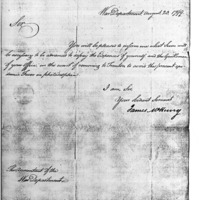 War Department August 30, 1799
Sir,
You will be pleased to inform me what sum will
be necessary to be advanced to enjoy the expences of yourself and the Gentlemen
of your Office, in the event of removing to Trenton to avoid the present epi-
demic Fever in Philadelphia
I am Sir
Your obedient Servant
James McHenry
The Accountant of the
War Department